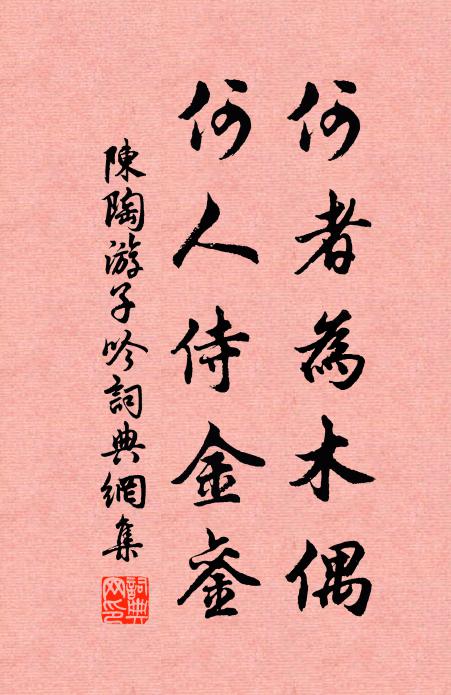 何者為木偶
何人侍金銮
陳陶游子吟詞典網集
詞典网印